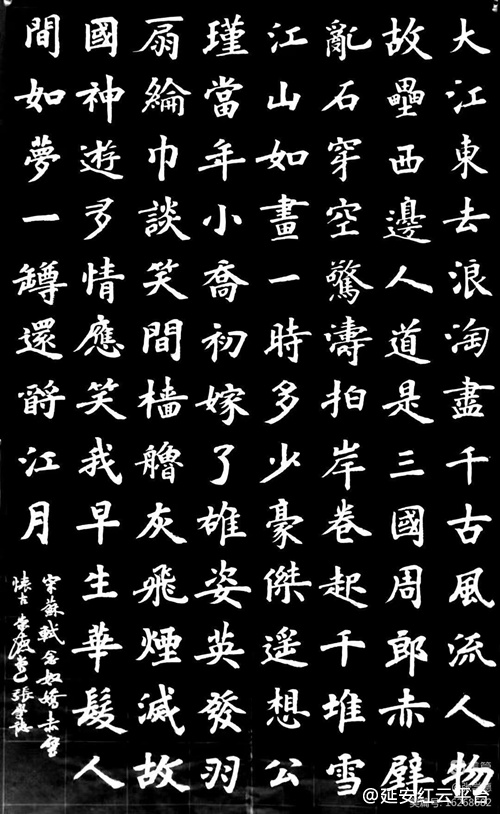 大江東去浪淘盡千古風流人物
故壘西邊人道是三國周郎赤壁
亂石穿空驚濤拍岸卷起千堆雪
江山如畫一時多少豪傑遙想公
瑾當年小喬初嫁了雄姿英發羽
扇綸巾談笑間檣艪灰飛煙滅故
國神遊多情應笑我早生華髮人
間如夢一罇還酹江月
宋蘇軾念奴嬌赤壁
懷古
@延安红云平台